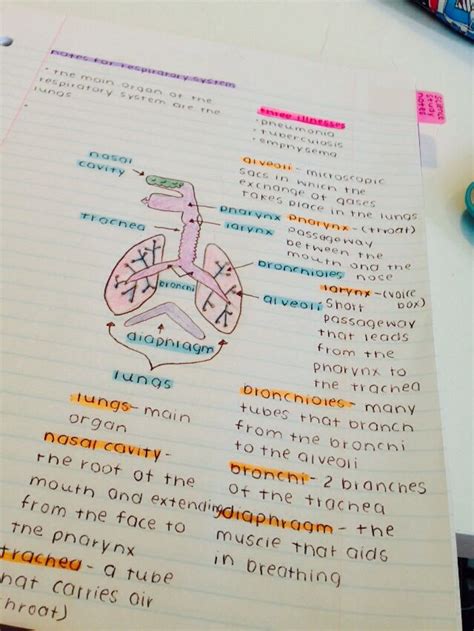 notes for respiratory system
• the main organ of the
respiratory system are the
lungs
three illnesses
• pneumonia
• tuberculosis
• emphysema
nasal
cavity
trachea
pharynx
larynx
bronchioles
alveoli
bronchi
diaphragm
lungs
alveoli - microscopic
sacs in which the
exchange of gases
takes place in the lungs
pharynx - (throat)
passageway
between the
mouth and the
nose
larynx - (voice
box)
short
passageway
that leads
from the
pharynx to
the trachea
lungs - main
organ
nasal cavity -
the root of the
mouth and extending
from the face to
the pharynx
trachea - a tube
that carries air
(throat)
bronchioles - many
tubes that branch
from the bronchi
to the alveoli
bronchi - 2 branches
of the trachea
diaphragm - the
muscle that aids
in breathing